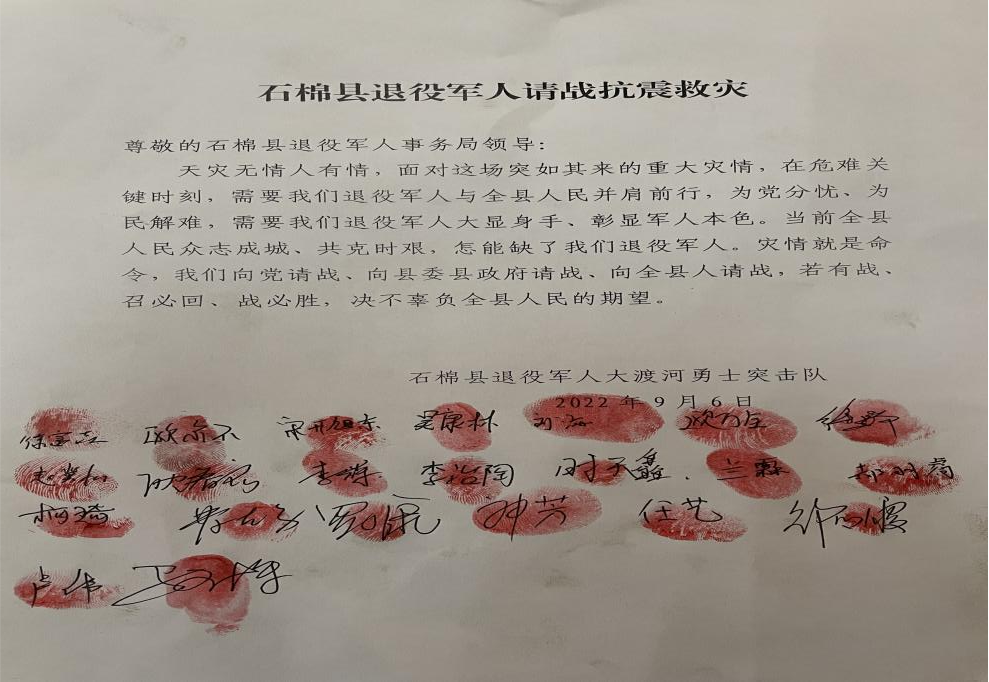 石棉县退役军人请战抗震救灾
尊敬的石棉县退役军人事务局领导：
天灾无情人有情，面对这场突如其来的重大灾情，在危难关
键时刻，需要我们退役军人与全县人民并肩前行，为党分忧、为
民解难，需要我们退役军人大显身手、彰显军人本色。当前全县
人民众志成城、共克时艰，怎能缺了我们退役军人。灾情就是命
令，我们向党请战、向县委县政府请战、向全县人请战，若有战、
召必回、战必胜，决不辜负全县人民的期望。
石棉县退役军人大渡河勇士突击队
2022年9月6日
吴康林
李涛 李治陶 兰霖
任艺
卢伟